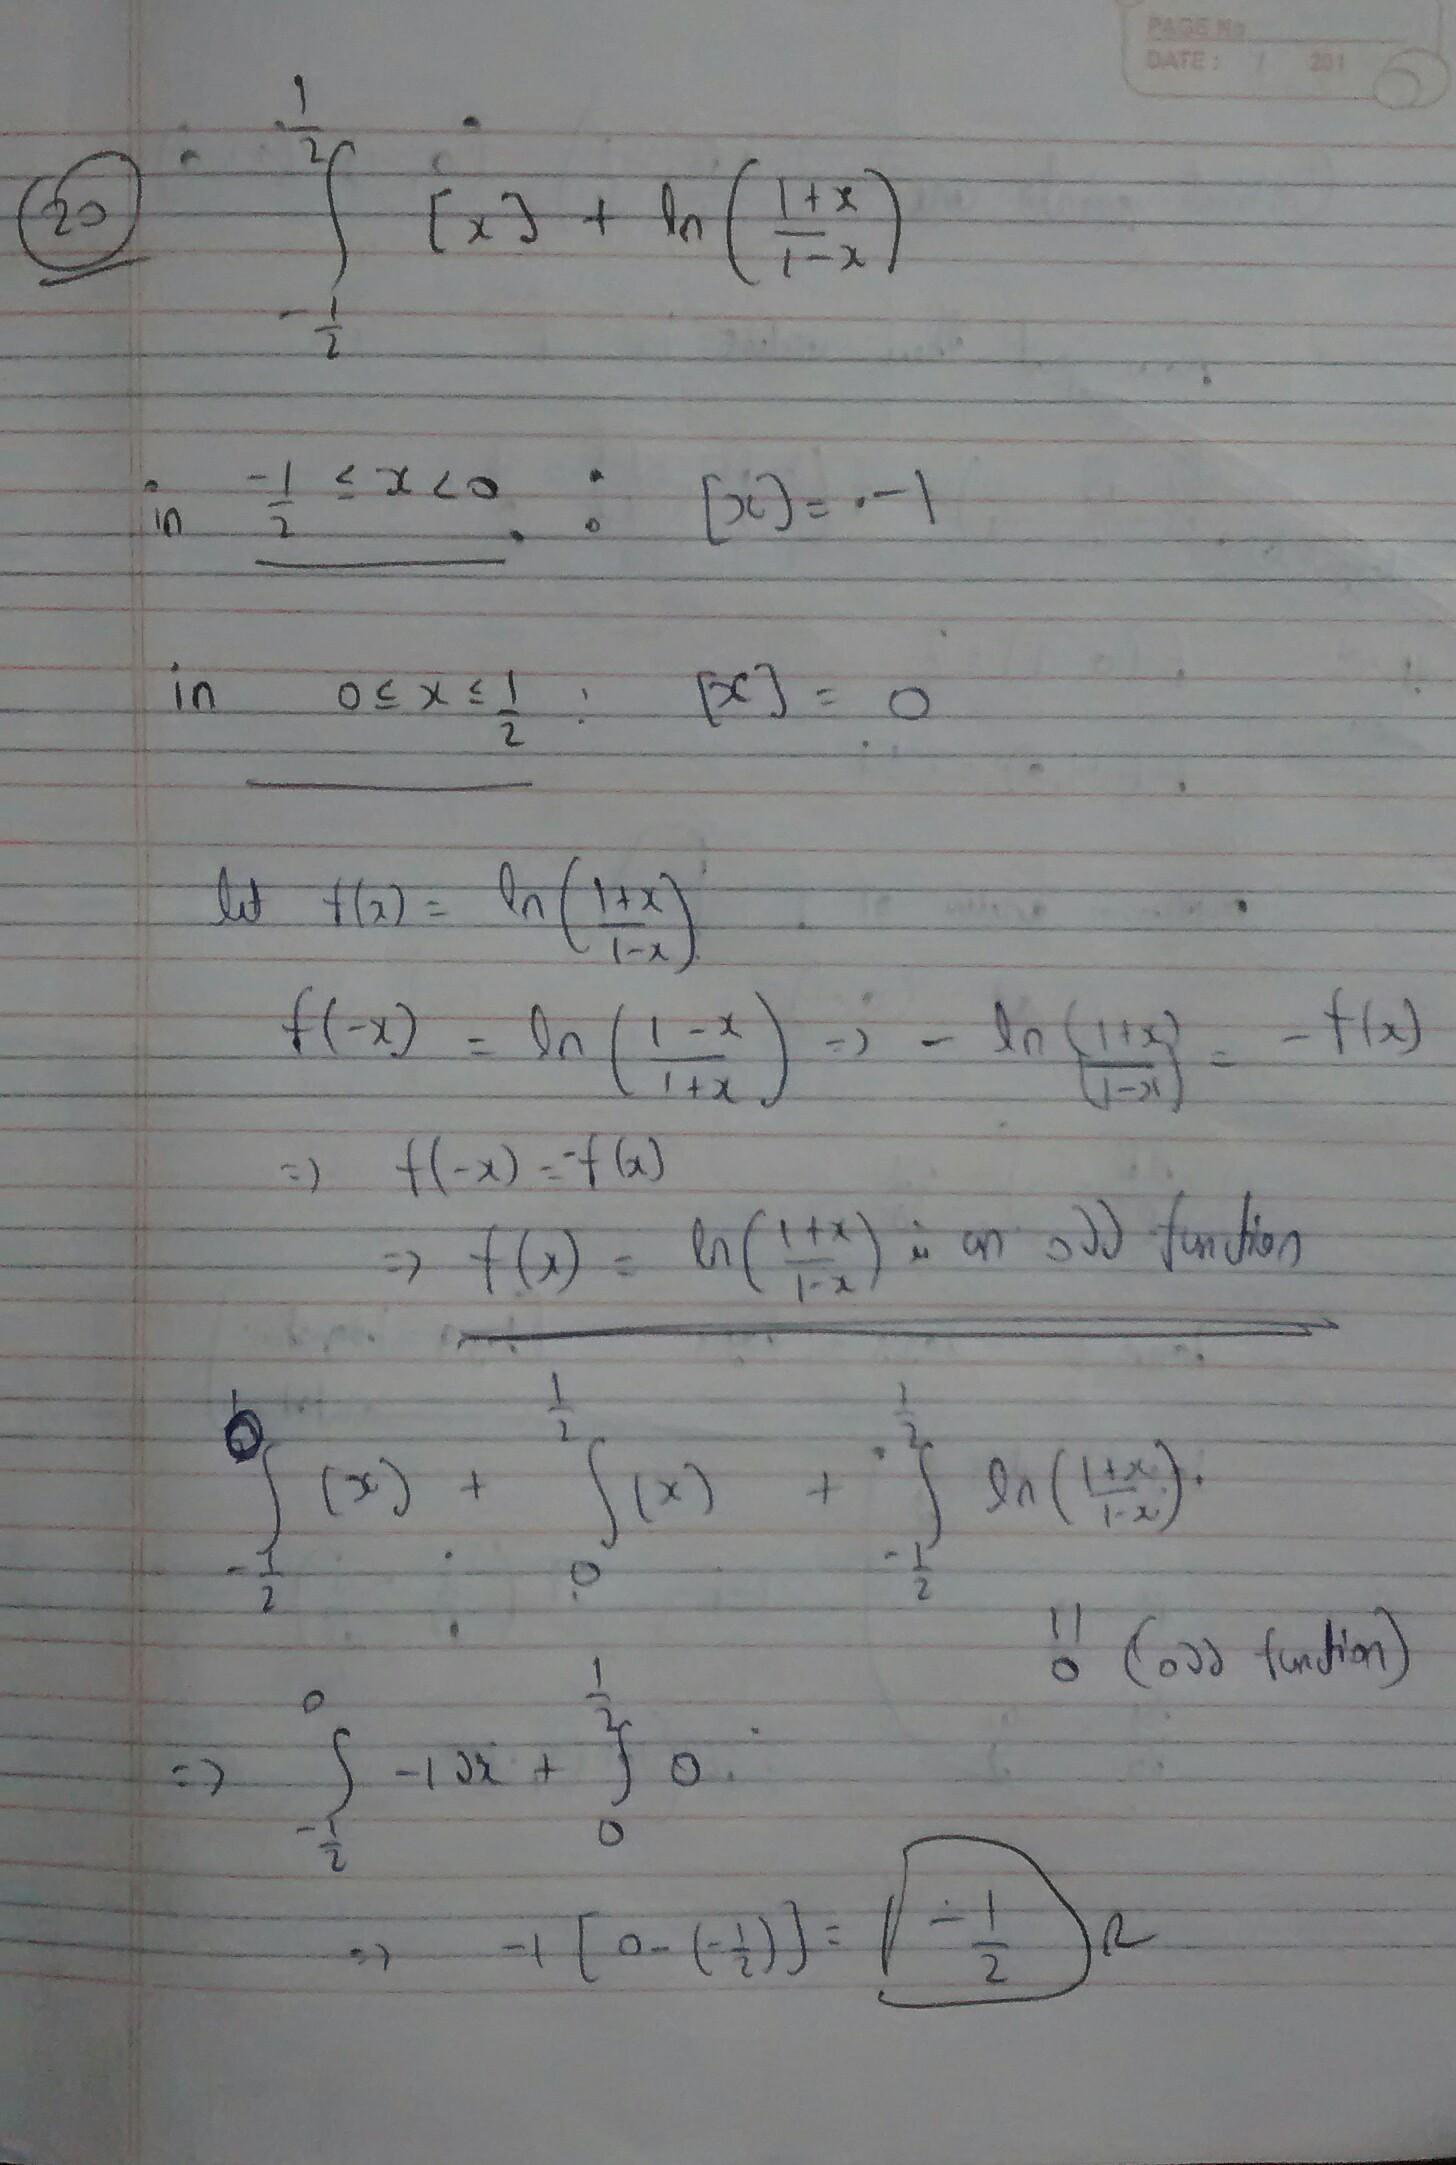 PAGE No.
DATE: / 201
20 ∫_{-1/2}^{1/2} [x] + ln((1+x)/(1-x))
in -1/2 ≤ x < 0 : [x] = -1
in 0 ≤ x ≤ 1/2 : [x] = 0
let f(x) = ln((1+x)/(1-x))
f(-x) = ln((1-x)/(1+x)) => - ln((1+x)/(1-x)) = - f(x)
=> f(-x) = -f(x)
=> f(x) = ln((1+x)/(1-x)) is an odd function
∫_{-1/2}^{0} (x) + ∫_{0}^{1/2} (x) + ∫_{-1/2}^{1/2} ln((1+x)/(1-x))
|| 0 (odd function)
=> ∫_{-1/2}^{0} -1 dx + ∫_{0}^{1/2} 0
=> -1 [0 - (-1/2)] = -1/2